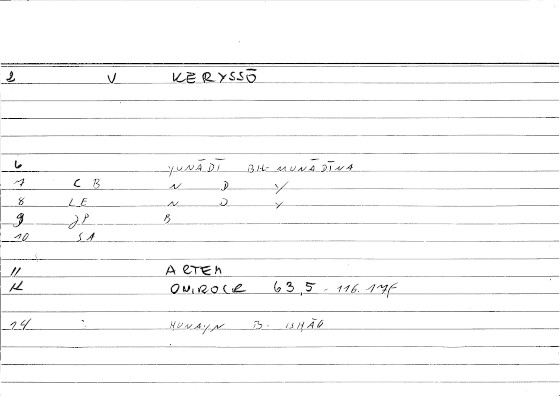 2 V KĒRYSSŌ
6 YUNĀDĪ BH- MUNĀDĪNA
7 CB N D Y
8 LE N D Y
9 JP B
10 SA
11 ARTEM
12 ONIROCR 63,5 - 116.17f
14 HUNAYN B- ISHĀQ